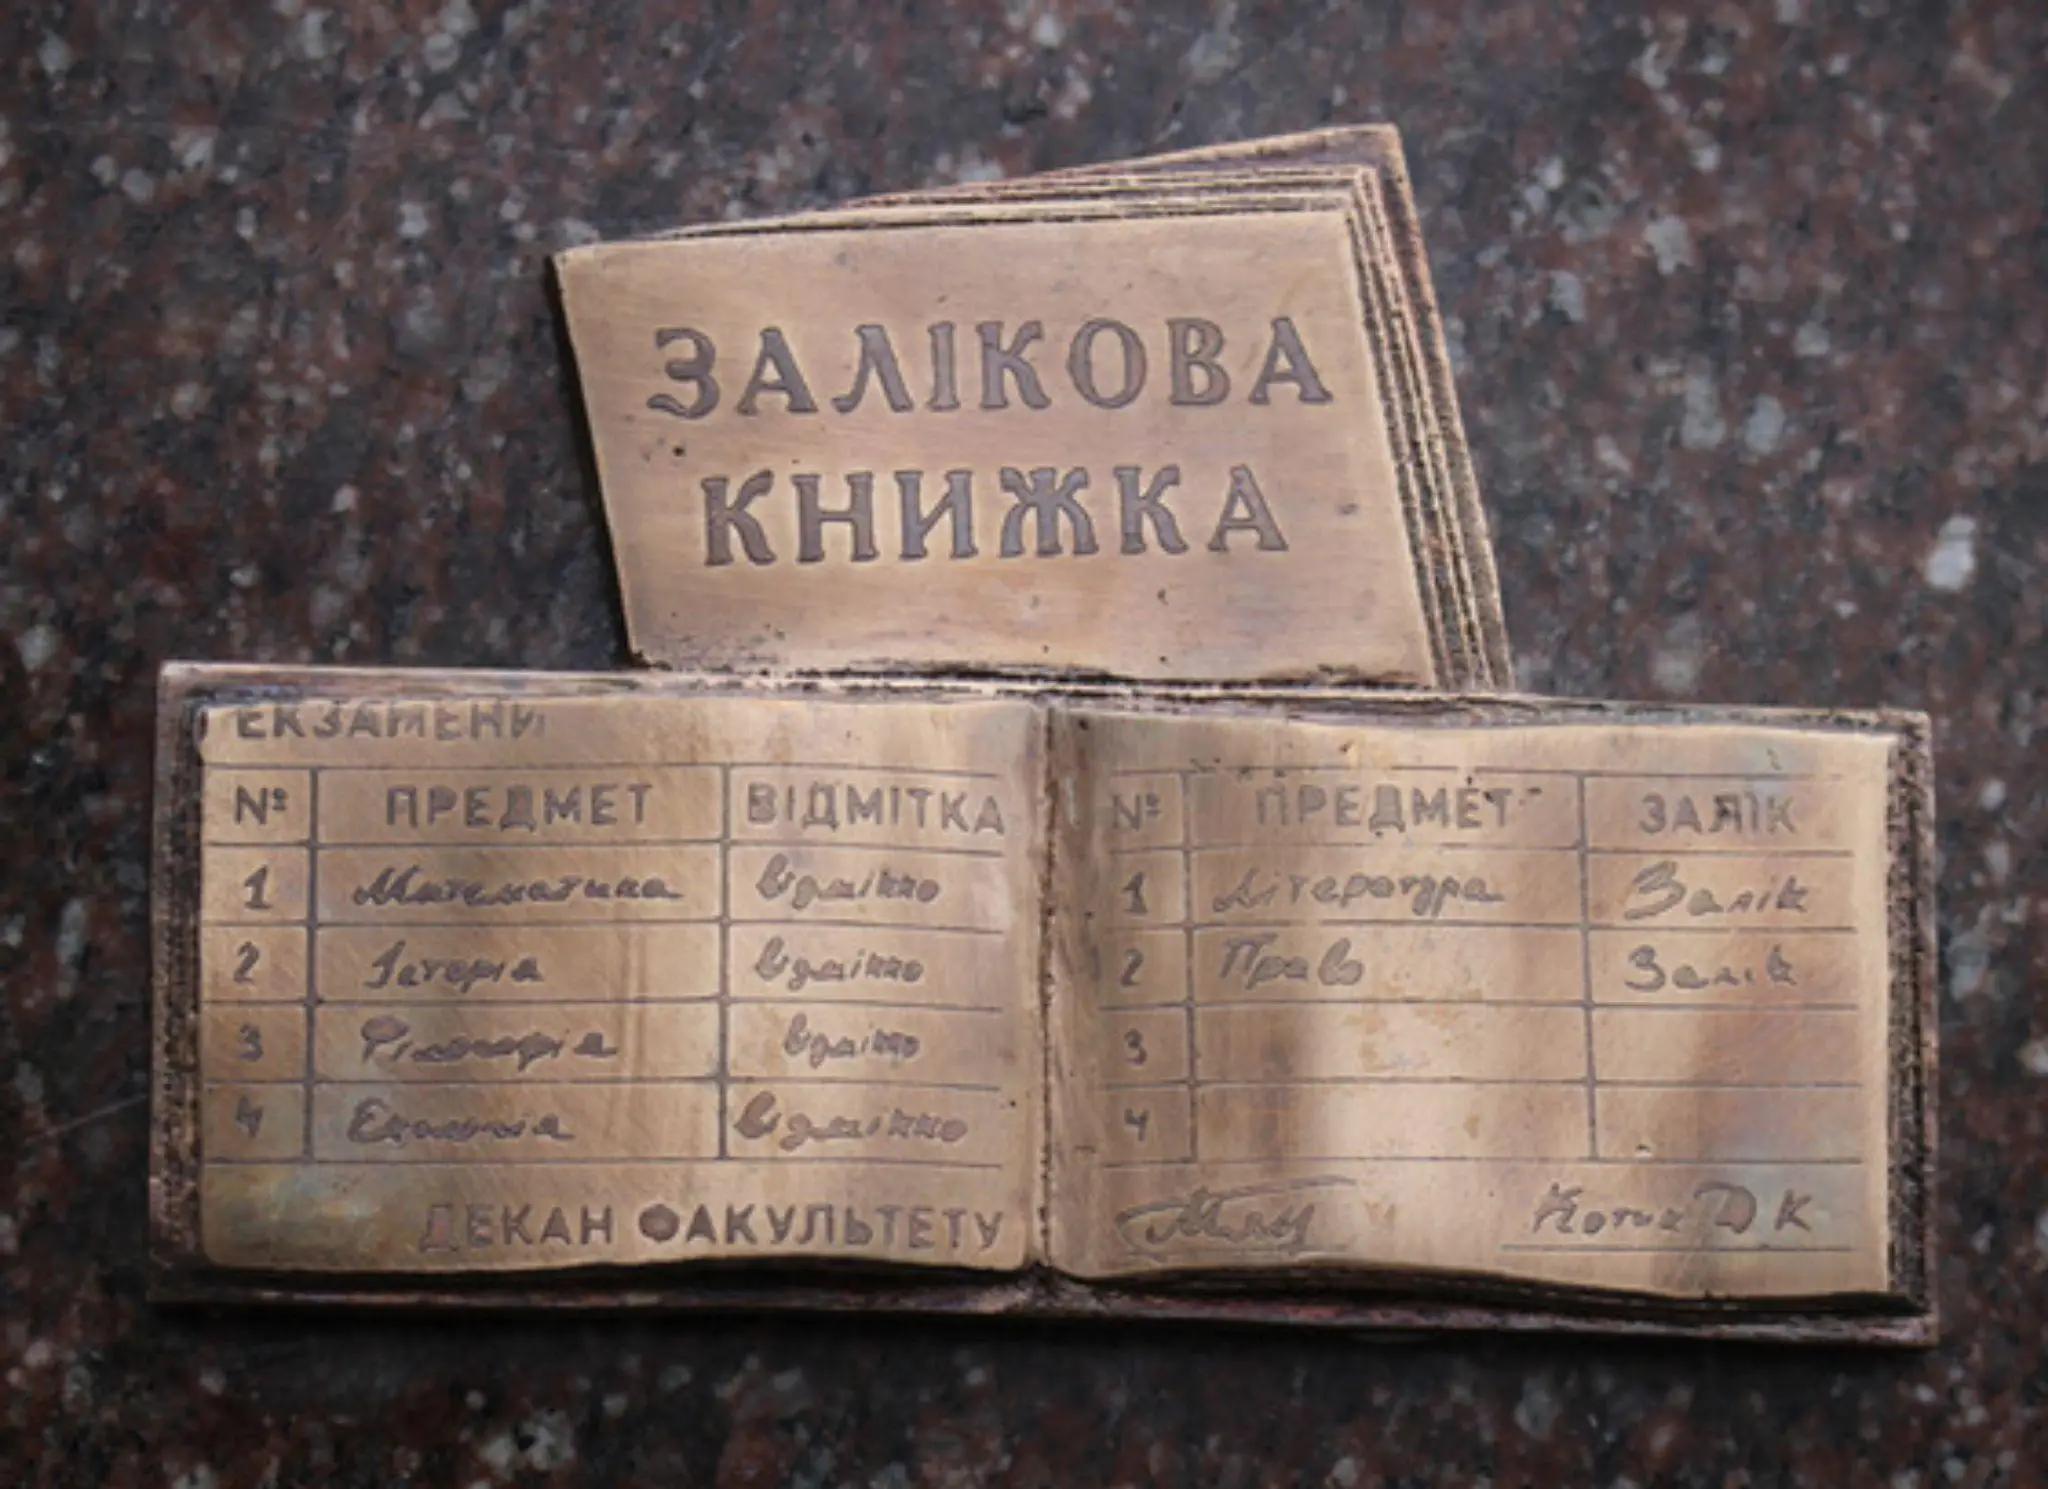 ЗАЛІКОВА
КНИЖКА
ЕКЗАМЕНИ
№ ПРЕДМЕТ ВІДМІТКА
1 Математика відмінно
2 Історія відмінно
3 Філософія відмінно
4 Економія відмінно
ДЕКАН ФАКУЛЬТЕТУ
№ ПРЕДМЕТ ЗАЛІК
1 Література Залік
2 Право Залік
3
4
Котик Д К